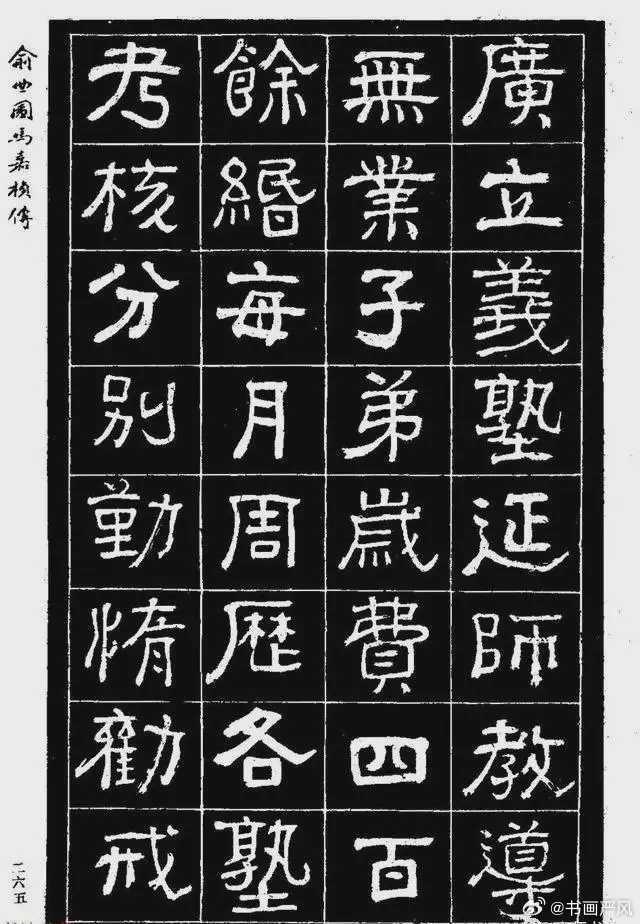 廣立義塾延師教導
無業子弟歲費四百
餘緡每月周歷各塾
考核分別勤惰勸戒
俞曲園馮孝楨傳
二六五
@书画严风